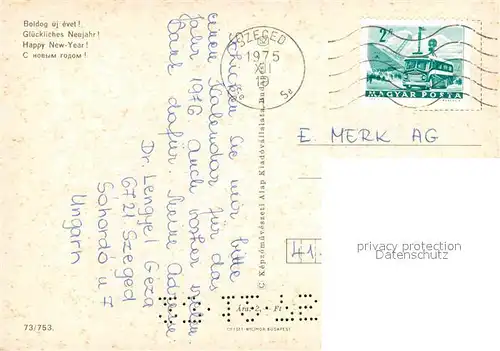 Boldog új évet!
Glückliches Neujahr!
Happy New-Year!
С новым годом!
Schicken Sie mir bitte
einen Kalendar für das
Jahr 1976. Auch vorher vielen
Dank dafür. Meine Adresse
Dr. Lengyel Géza
6721 Szeged
Sáhordó u 7
Ungarn
SZEGED
1975
XII
2 Ft
MAGYAR POSTA
E. MERK AG
41
privacy protection
Datenschutz
C Képzőművészeti Alap Kiadóvállalata Budapest
Ára: 2,- Ft
73/753.